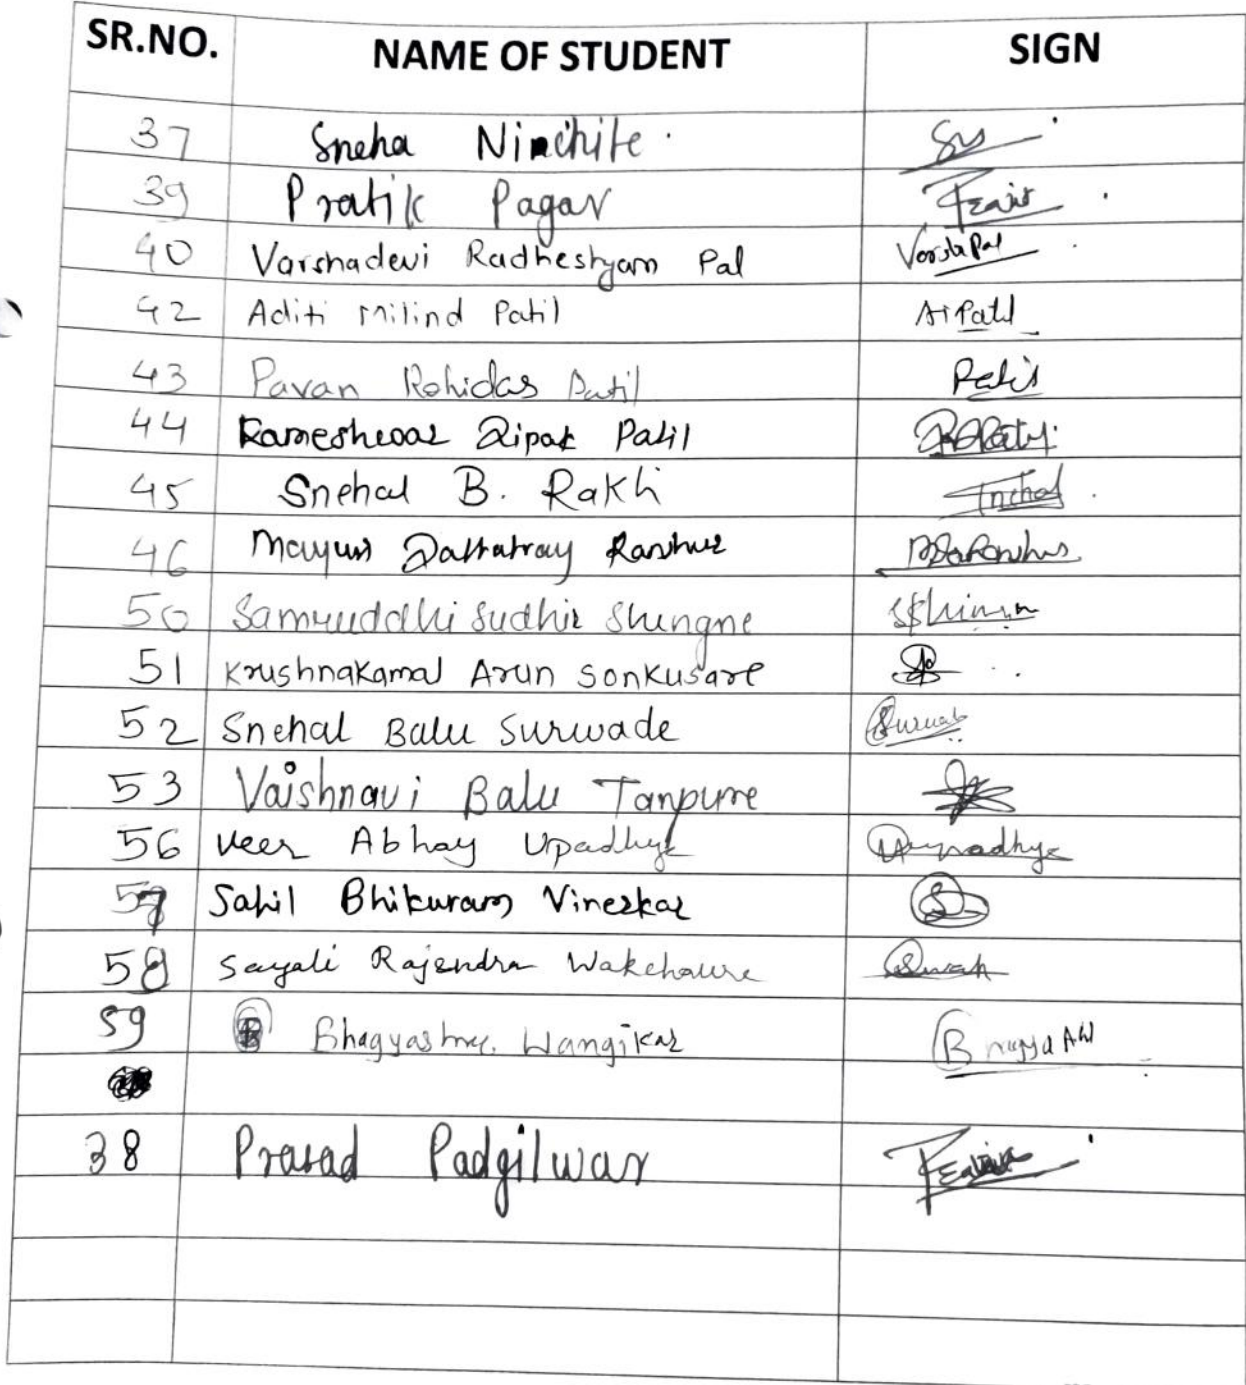 SR.NO. NAME OF STUDENT SIGN
37 Sneha Ninchite
39 Pratik Pagar
40 Varshadevi Radheshyam Pal Varsha Pal
42 Aditi Milind Patil A.Patil
43 Pavan Rohidas Patil Patil
44 Rameshwar Dipak Patil
45 Snehal B. Rakh Snehal
46 Mayur Dattatray Ranshur
50 Samruddhi Sudhir Shingne
51 Krushnakamal Arun Sonkusare
52 Snehal Balu Surwade
53 Vaishnavi Balu Tanpure
56 Veer Abhay Upadhye Upadhye
57 Sahil Bhikuram Vinerkar
58 Sayali Rajendra Wakchaure
59 Bhagyashree Wangikar
38 Prasad Padgilwar